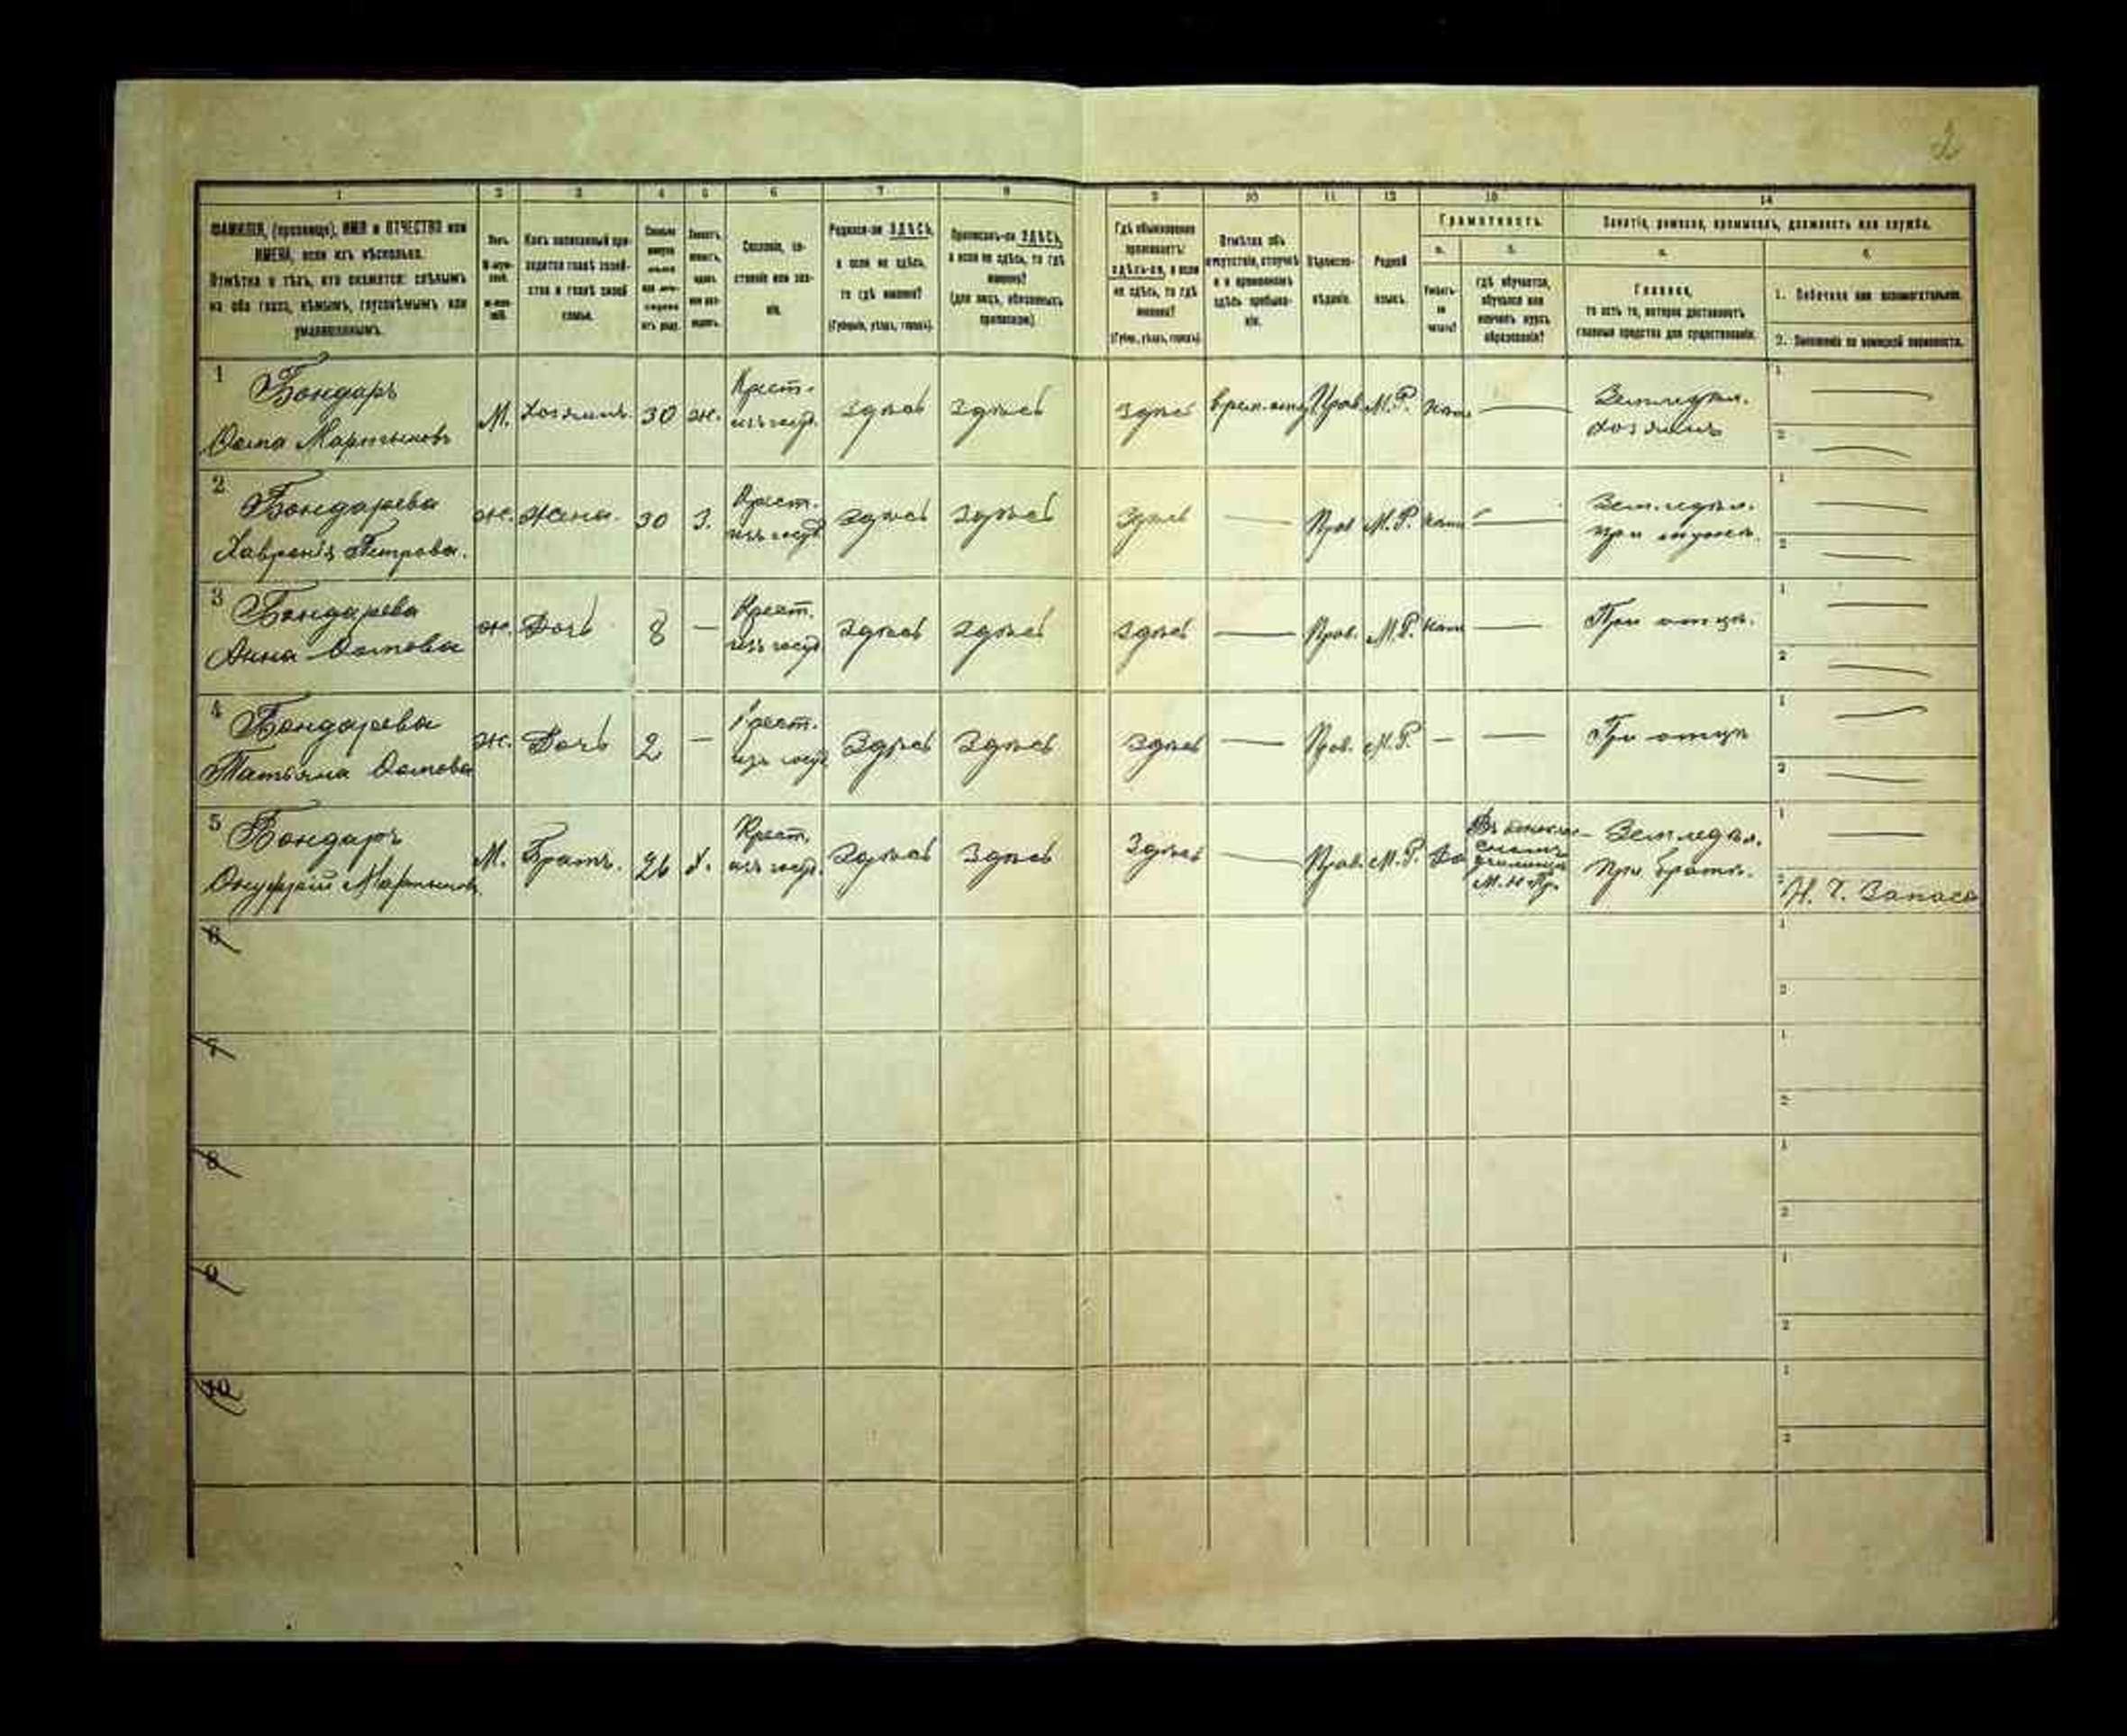 2
1
2
3
4
5
6
7
8
9
10
11
12
13
14
ФАМИЛІЯ, (прозвище), ИМЯ и ОТЧЕСТВО или
ИМЕНА, если ихъ нѣсколько.
Отмѣтка о тѣхъ, кто окажется: слѣпымъ
на оба глаза, нѣмымъ, глухонѣмымъ или
умалишеннымъ.
Какъ записанный при-
ходится главѣ хозяй-
ства и главѣ своей
семьи.
Сословіе, со-
стояніе или зва-
ніе.
Родился-ли ЗДѢСЬ,
а если не здѣсь,
то гдѣ именно?
(Губернія, уѣздъ, городъ).
Приписанъ-ли ЗДѢСЬ,
а если не здѣсь, то гдѣ
именно?
(для лицъ, обязанныхъ
припискою)
Гдѣ обыкновенно
проживаетъ:
здѣсь-ли, а если
не здѣсь, то гдѣ
именно?
(Губер., уѣздъ, городъ)
Отмѣтка объ
отсутствіи, отлучкѣ
и о временномъ
здѣсь пребыва-
ніи.
Вѣроиспо-
вѣданіе.
Родной
языкъ.
Грамотность.
а.
б.
Умѣетъ-
ли
читать?
гдѣ обучается,
обучался или
кончилъ курсъ
образованія?
Занятіе, ремесло, промыселъ, должность или служба.
а.
б.
Главное,
то есть то, которое доставляетъ
главныя средства для существованія.
1. Побочное или вспомогательное.
2. Положеніе по воинской повинности.
1
Бондаръ
Фома Мартыновъ
М.
Хозяинъ.
30
ж.
Крест.
изъ госуд.
Здѣсь
Здѣсь
Здѣсь
врем. отл
Прав.
М.Р.
нѣтъ
Земледѣл.
хозяинъ
1
2
2
Бондарева
Хавронія Петрова.
ж.
Жена.
30
З.
Крест.
изъ госуд
Здѣсь
Здѣсь
Здѣсь
Прав
М.Р.
нѣтъ
Земледѣл.
при мужѣ.
1
2
3
Бондарева
Анна Фомова
ж.
Дочь
8
Крест.
изъ госуд
Здѣсь
Здѣсь
Здѣсь
Прав.
М.Р.
нѣтъ
При отцѣ.
1
2
4
Бондарева
Татьяна Фомова
ж.
Дочь
2
Крест.
изъ госуд
Здѣсь
Здѣсь
Здѣсь
Прав.
М.Р.
При отцѣ
1
2
5
Бондаръ
Онуфрій Мартыновъ
М.
Братъ.
26
х.
Крест.
изъ госуд.
Здѣсь
Здѣсь
Здѣсь
Прав.
М.Р.
Да
училищѣ
М. Н. Пр.
Земледѣл.
При братѣ.
1
2
Н. Ч. Запаса
6
1
2
7
1
2
8
1
2
9
1
2
10
1
2